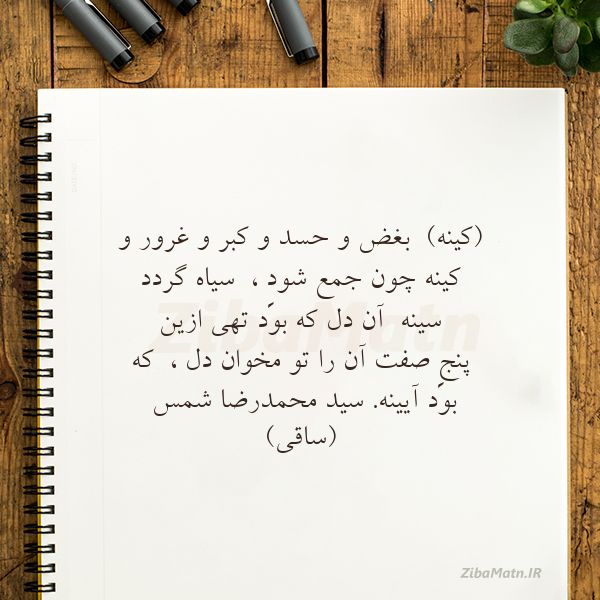 (کینه) بغض و حسد و کبر و غرور و
کینه چون جمع شودِ ، سیاه گردد
سینه آن دل که بوَد تهی ازین
پنج صفت آن را تو مخوان دل ، که
بوَد آیینه. سید محمدرضا شمس
(ساقی)
ZibaMatn
ZibaMatn.IR